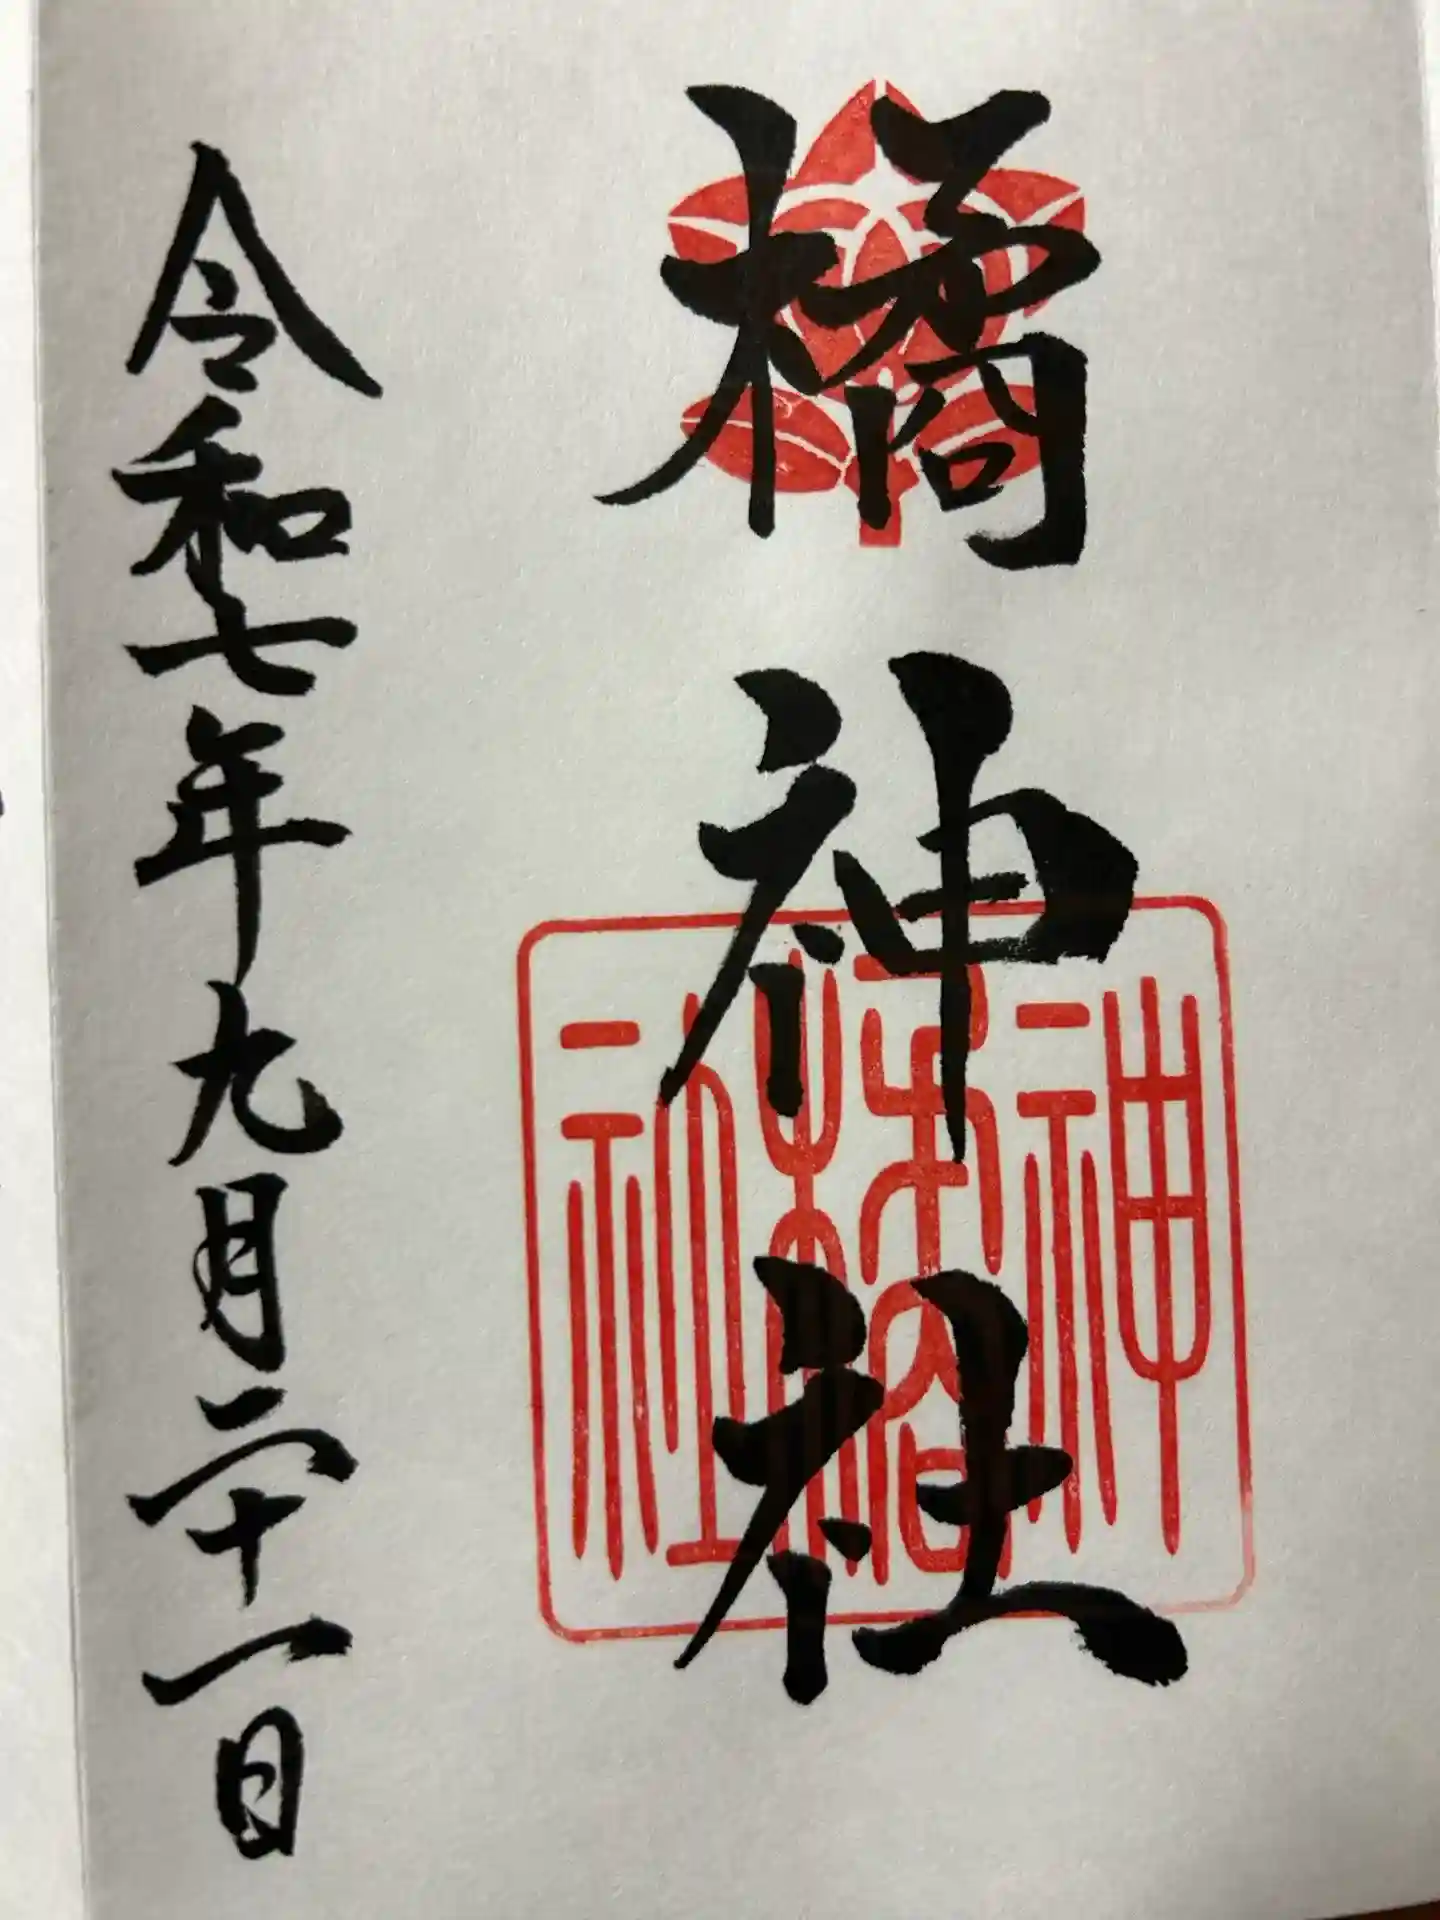 橘神社
橘神社
令和七年九月二十一日